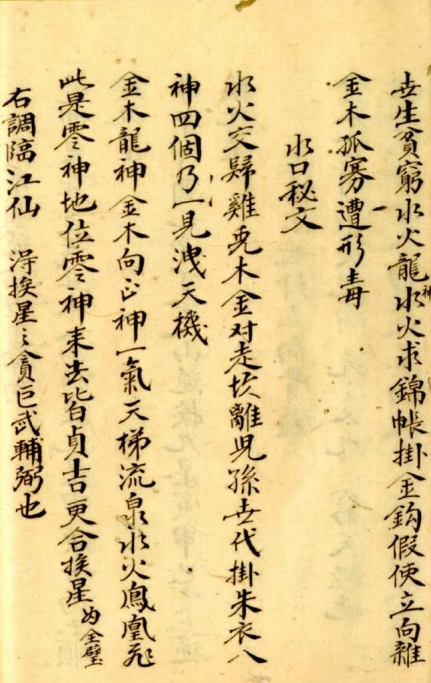 世生貧窮水火龍神水火求錦帳掛金鈎假使立向雜
金木孤寡遭形毒
水口秘文
水火交歸雞兎木金对走坎離児孫世代掛朱衣八
神四個乃一見洩天機
金木龍神金木向正神一氣天梯流泉水火鳳凰飛
此是零神地位零神来去皆貞吉更合挨星為全璧
右調臨江仙 淂挨星之貪巨武輔弼也